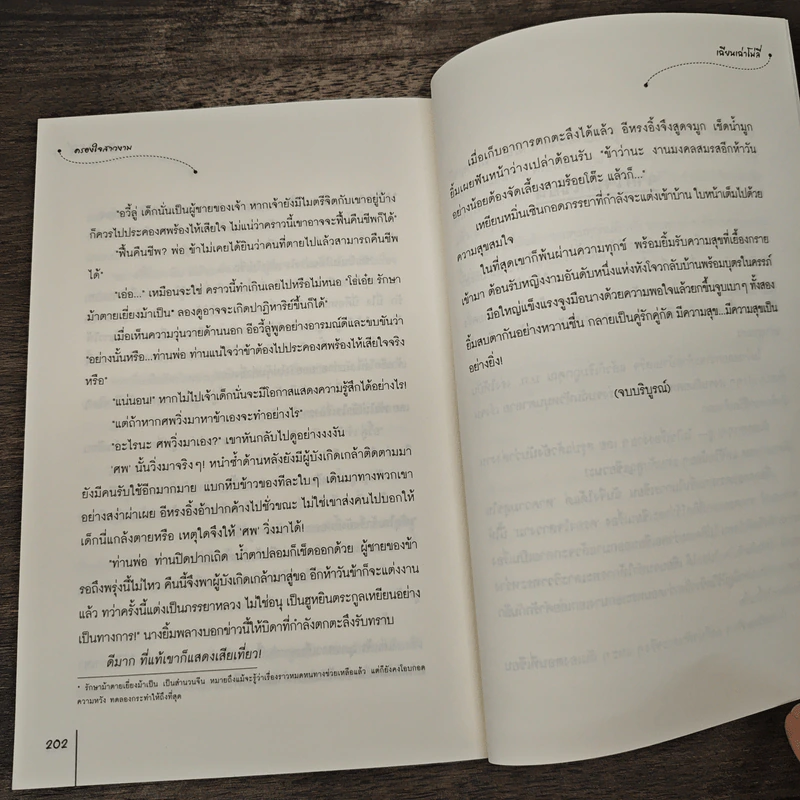 ครองใจสาวงาม
"อวี้ลู่ เด็กนั่นเป็นผู้ชายของเจ้า หากเจ้ายังมีไมตรีจิตกับเขาอยู่บ้าง
ก็ควรไปประคองศพร้องไห้เสียใจ ไม่แน่ว่าคราวนี้เขาอาจจะฟื้นคืนชีพก็ได้"
"ฟื้นคืนชีพ? พ่อ ข้าไม่เคยได้ยินว่าคนที่ตายไปแล้วสามารถคืนชีพ
ได้"
"เอ่อ..." เหมือนจะใช่ คราวนี้ทำเกินเลยไปหรือไม่หนอ "โธ่เอ๋ย รักษา
ม้าตายเยี่ยงม้าเป็น* ลองดูอาจจะเกิดปาฏิหาริย์ขึ้นก็ได้"
เมื่อเห็นความวุ่นวายด้านนอก อีอวี้ลู่พูดอย่างอารมณ์ดีและขบขันว่า
"อย่างนั้นหรือ...ท่านพ่อ ท่านแน่ใจว่าข้าต้องไปประคองศพร้องไห้เสียใจจริง
หรือ"
"แน่นอน!" หากไม่ไปเจ้าเด็กนั่นจะมีโอกาสแสดงความรู้สึกได้อย่างไร!
"แต่ถ้าหากศพวิ่งมาหาข้าเองจะทำอย่างไร"
"อะไรนะ ศพวิ่งมาเอง?" เขาหันกลับไปดูอย่างงงงัน
'ศพ' นั้นวิ่งมาจริงๆ! หนำซ้ำด้านหลังยังมีผู้บังเกิดเกล้าติดตามมา
ยังมีคนรับใช้อีกมากมาย แบกหีบข้าวของทีละใบๆ เดินมาทางพวกเขา
อย่างสง่าผ่าเผย อีหรงอิ้งอ้าปากค้างไปชั่วขณะ ไม่ใช่เขาส่งคนไปบอกให้
เด็กนี่แกล้งตายหรือ เหตุใดจึงให้ 'ศพ' วิ่งมาได้!
"ท่านพ่อ ท่านปิดปากเถิด น้ำตาปลอมก็เช็ดออกด้วย ผู้ชายของข้า
รอถึงพรุ่งนี้ไม่ไหว คืนนี้จึงพาผู้บังเกิดเกล้ามาสู่ขอ อีกห้าวันข้าก็จะแต่งงาน
แล้ว ทว่าครั้งนี้แต่งเป็นภรรยาหลวง ไม่ใช่อนุ เป็นฮูหยินตระกูลเหยียนอย่าง
เป็นทางการ!" นางยิ้มพลางบอกข่าวนี้ให้บิดาที่กำลังตกตะลึงรับทราบ
ดีมาก ที่แท้เขาก็แสดงเสียเที่ยว!
* รักษาม้าตายเยี่ยงม้าเป็น เป็นสำนวนจีน หมายถึงแม้จะรู้ว่าเรื่องราวหมดหนทางช่วยเหลือแล้ว แต่ก็ยังคงโอบกอด
ความหวัง ทดลองกระทำให้ถึงที่สุด
202
เฉียนเฉ่าโม่ลี่
เมื่อเก็บอาการตกตะลึงได้แล้ว อีหรงอิ้งจึงสูดจมูก เช็ดน้ำมูก
ยิ้มเผยฟันหน้าว่างเปล่าต้อนรับ "ข้าว่านะ งานมงคลสมรสอีกห้าวัน
อย่างน้อยต้องจัดเลี้ยงสามร้อยโต๊ะ แล้วก็..."
เหยียนหมิ่นเซินกอดภรรยาที่กำลังจะแต่งเข้าบ้าน ใบหน้าเต็มไปด้วย
ความสุขสมใจ
ในที่สุดเขาก็พ้นผ่านความทุกข์ พร้อมยิ้มรับความสุขที่เยื้องกราย
เข้ามา ต้อนรับหญิงงามอันดับหนึ่งแห่งหังโจวกลับบ้านพร้อมบุตรในครรภ์
มือใหญ่แข็งแรงจูงมือนางด้วยความพอใจแล้วยกขึ้นจูบเบาๆ ทั้งสอง
ยิ้มสบตากันอย่างหวานชื่น กลายเป็นคู่รักคู่กัด มีความสุข...มีความสุขเป็น
อย่างยิ่ง!
(จบบริบูรณ์)